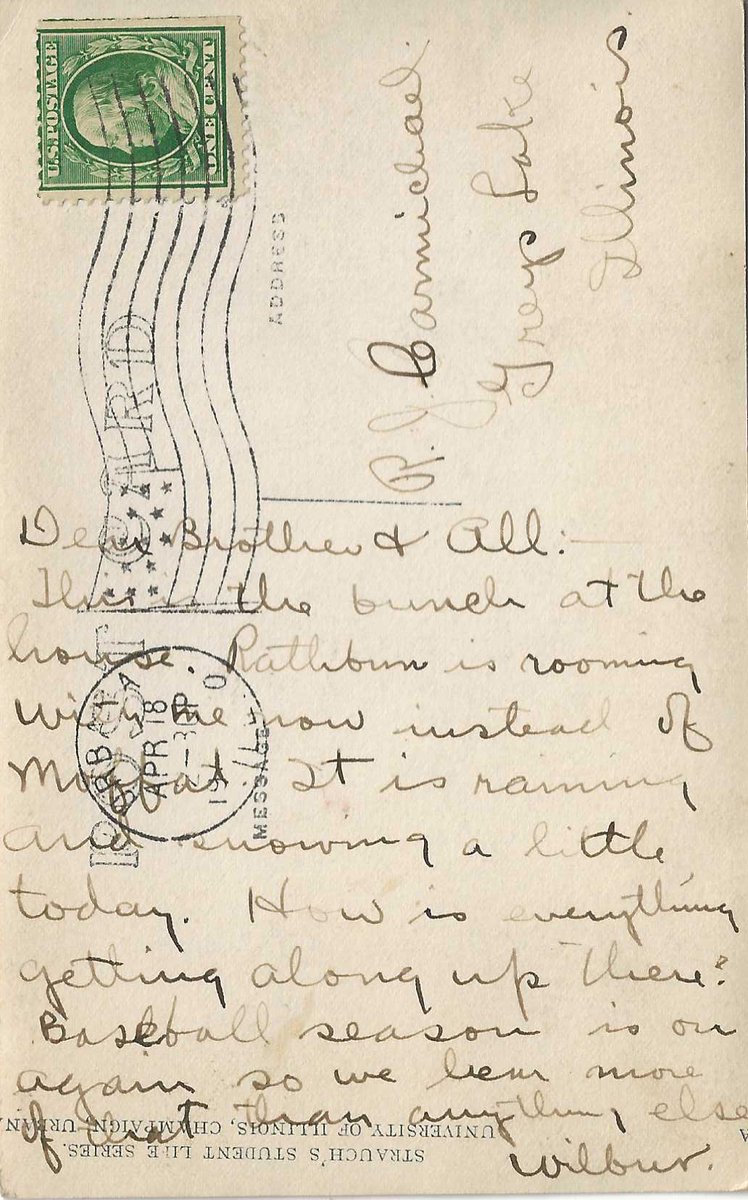 U.S. POSTAGE
ONE CENT
POST CARD
ADDRESS
R. J. Carmichael.
Greys Lake
Illinois
URBANA
APR 18
3-30P
1910
ILL.
MESSAGE
Dear Brother & All:—
This is the bunch at the
house. Rathbun is rooming
with me now instead of
Moffat. It is raining
and snowing a little
today. How is everything
getting along up there?
Baseball season is on
again so we hear more
of that than anything else
Wilbur.
STRAUCH'S STUDENT LIFE SERIES.
UNIVERSITY OF ILLINOIS, CHAMPAIGN, URBANA